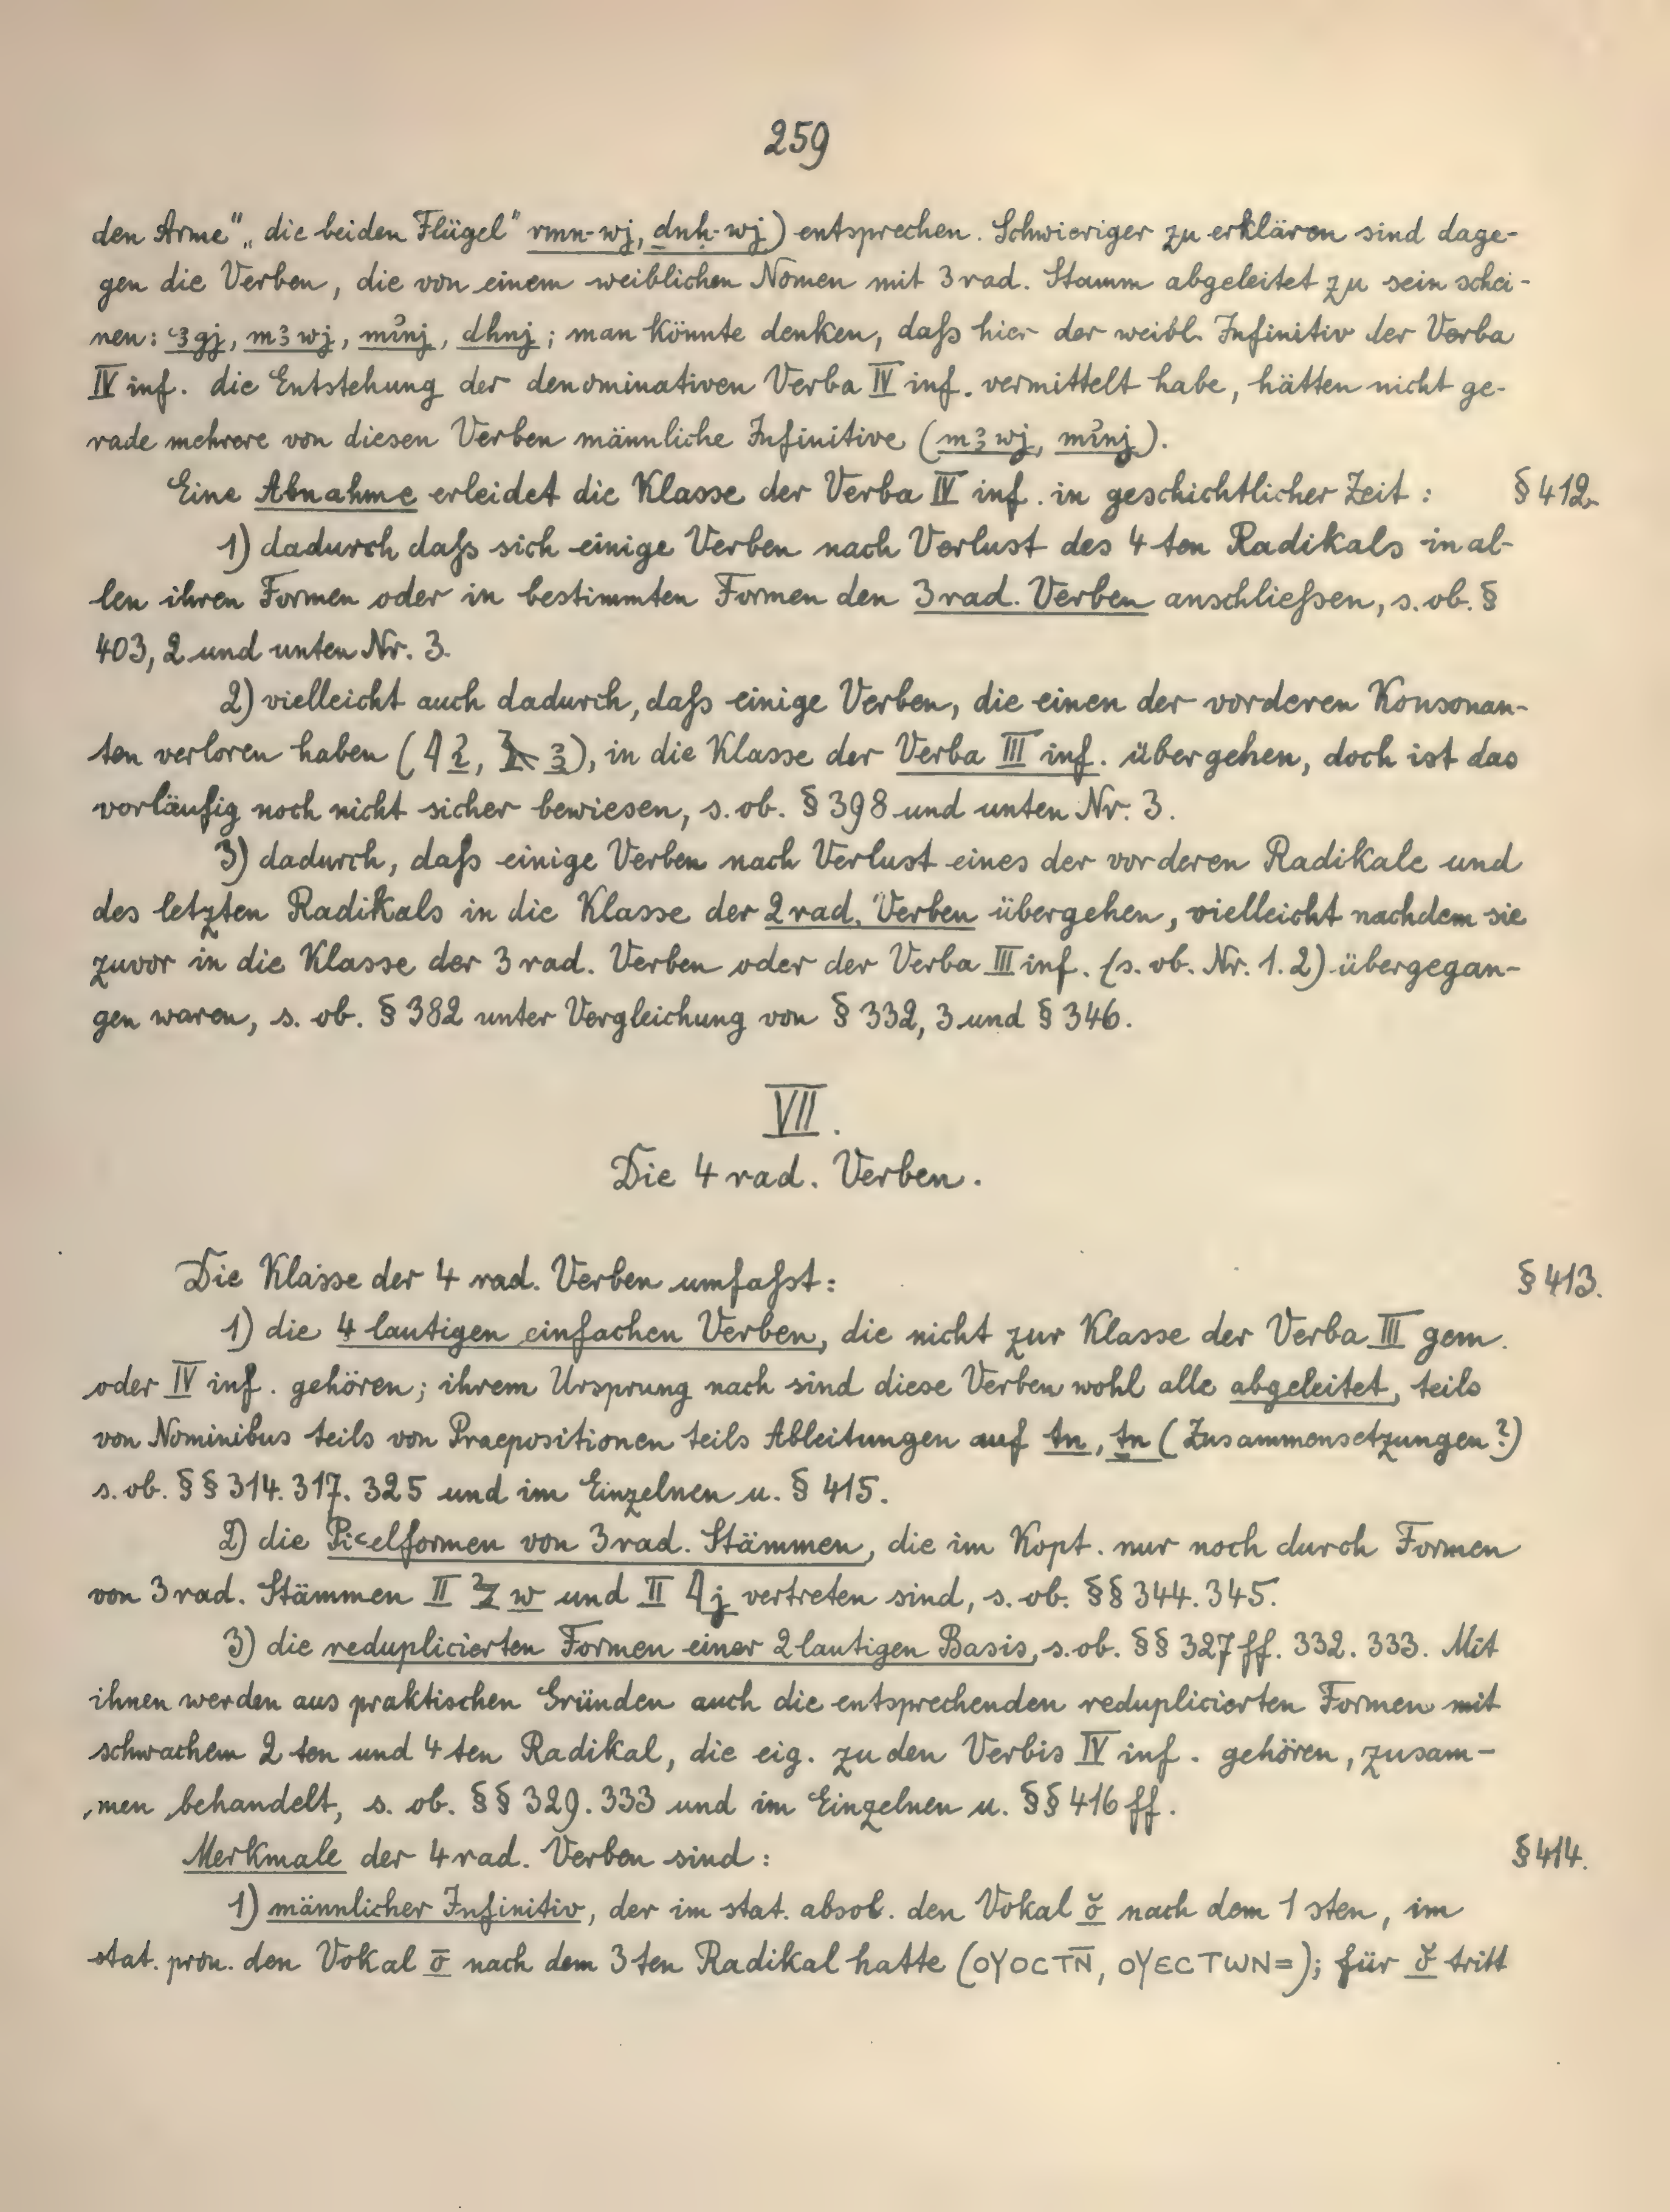 259
den Arme" „die beiden Flügel" rmn-wj, dnḥ-wj) entsprechen. Schwieriger zu erklären sind dage-
gen die Verben, die von einem weiblichen Nomen mit 3 rad. Stamm abgeleitet zu sein schei-
nen: ꜥꜣgj, mꜣwj, mı͗nj, dhnj; man könnte denken, daſs hier der weibl. Infinitiv der Verba
IV inf. die Entstehung der denominativen Verba IV inf. vermittelt habe, hätten nicht ge-
rade mehrere von diesen Verben männliche Infinitive (mꜣwj, mı͗nj).
Eine Abnahme erleidet die Klasse der Verba IV inf. in geschichtlicher Zeit: § 412.
1) dadurch daſs sich einige Verben nach Verlust des 4 ten Radikals in al-
len ihren Formen oder in bestimmten Formen den 3 rad. Verben anschlieſsen, s. ob. §
403, 2 und unten Nr. 3.
2) vielleicht auch dadurch, daſs einige Verben, die einen der vorderen Konsonan-
ten verloren haben (𓇋 ı͗, 𓄿 ꜣ), in die Klasse der Verba III inf. übergehen, doch ist das
vorläufig noch nicht sicher bewiesen, s. ob. § 398 und unten Nr. 3.
3) dadurch, daſs einige Verben nach Verlust eines der vorderen Radikale und
des letzten Radikals in die Klasse der 2 rad. Verben übergehen, vielleicht nachdem sie
zuvor in die Klasse der 3 rad. Verben oder der Verba III inf. (s. ob. Nr. 1. 2) übergegan-
gen waren, s. ob. § 382 unter Vergleichung von § 332, 3 und § 346.
VII.
Die 4 rad. Verben.
Die Klasse der 4 rad. Verben umfaſst: § 413.
1) die 4 lautigen einfachen Verben, die nicht zur Klasse der Verba III gem.
oder IV inf. gehören; ihrem Ursprung nach sind diese Verben wohl alle abgeleitet, teils
von Nominibus teils von Praepositionen teils Ableitungen auf tn, ṯn (Zusammensetzungen?)
s. ob. §§ 314. 317. 325 und im Einzelnen u. § 415.
2) die Piꜥelformen von 3 rad. Stämmen, die im Kopt. nur noch durch Formen
von 3 rad. Stämmen II 𓅱 w und II 𓇋 j vertreten sind, s. ob. §§ 344. 345.
3) die reduplicierten Formen einer 2 lautigen Basis, s. ob. §§ 327 ff. 332. 333. Mit
ihnen werden aus praktischen Gründen auch die entsprechenden reduplicierten Formen mit
schwachem 2 ten und 4 ten Radikal, die eig. zu den Verbis IV inf. gehören, zusam-
men behandelt, s. ob. §§ 329. 333 und im Einzelnen u. §§ 416 ff.
Merkmale der 4 rad. Verben sind: § 414.
1) männlicher Infinitiv, der im stat. absol. den Vokal ŏ nach dem 1 sten, im
stat. pron. den Vokal ō nach dem 3 ten Radikal hatte (ⲟⲩⲟⲥⲧⲛ̅, ⲟⲩⲉⲥⲧⲱⲛ=); für ŏ tritt